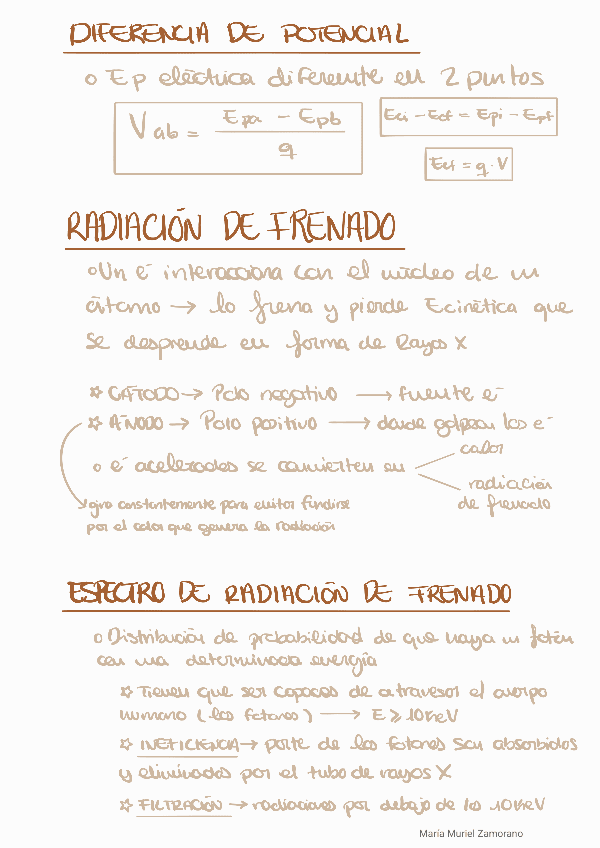 DIFERENCIA DE POTENCIAL
o Ep eléctrica diferente en 2 puntos
Vab = Epa - Epb / q
Eci - Ecf = Epi - Epf
Ecf = q · V
RADIACIÓN DE FRENADO
o Un e⁻ interacciona con el núcleo de un
átomo → lo frena y pierde Ecinética que
se desprende en forma de Rayos X
☆ CÁTODO → Polo negativo → fuente e⁻
☆ ÁNODO → Polo positivo → donde golpean los e⁻
o e⁻ acelerados se convierten en
calor
radiación
de frenado
giro constantemente para evitar fundirse
por el calor que genera la radiación
ESPECTRO DE RADIACIÓN DE FRENADO
o Distribución de probabilidad de que haya un fotón
con una determinada energía
☆ Tienen que ser capaces de atravesar el cuerpo
humano (los fotones) → E ≥ 10 keV
☆ INEFICIENCIA → parte de los fotones son absorbidos
y eliminados por el tubo de rayos X
☆ FILTRACIÓN → radiaciones por debajo de los 10 keV
María Muriel Zamorano